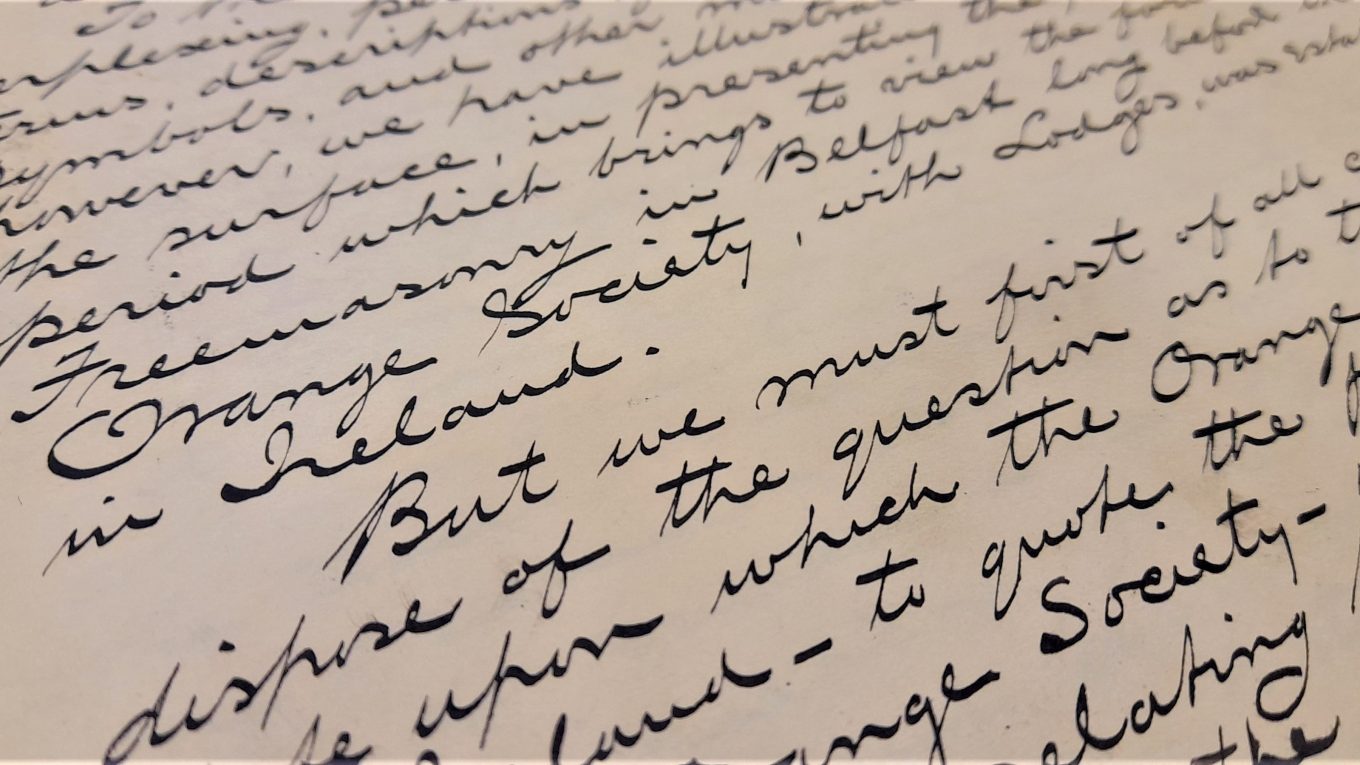 To the
perplexing, per
terms, descriptions
symbols, and other
however, we have illustrat
the surface, in presenting the
period which brings to view the for
Freemasonry in Belfast long before the
Orange Society, with Lodges, was esta
in Ireland.
But we must first of all
dispose of the question as to t
upon which the Orange
land – to quote the
ange Society –
elating
the